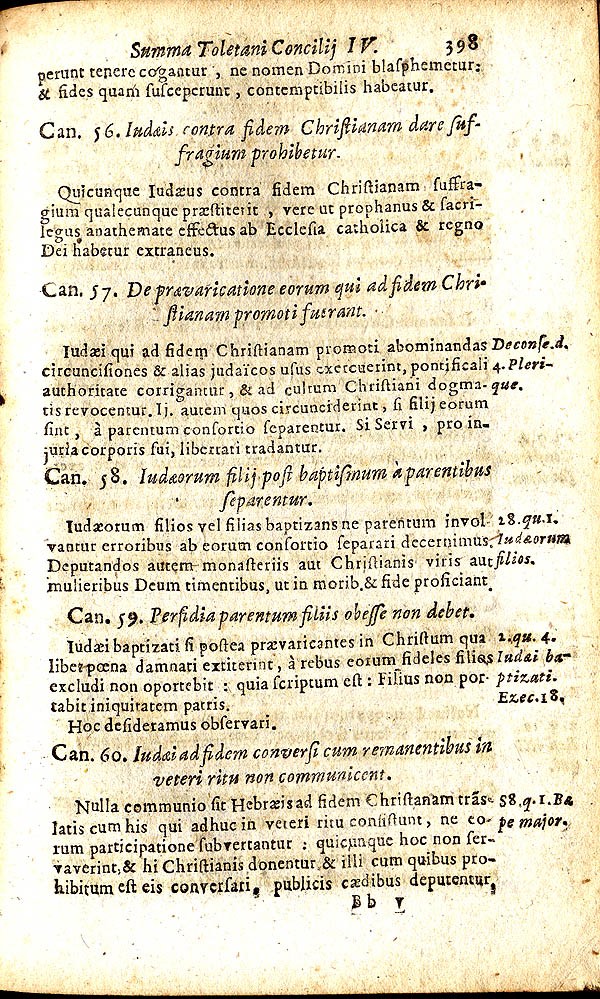 Summa Toletani Concilij IV. 398
perunt tenere cogantur, ne nomen Domini blasphemetur:
& fides quam susceperunt, contemptibilis habeatur.
Can. 56. Iudæis contra fidem Christianam dare suf-
fragium prohibetur.
Quicunque Iudæus contra fidem Christianam suffra-
gium qualecunque præstiterit, vere ut prophanus & sacri-
legus anathemate effectus ab Ecclesia catholica & regno
Dei habetur extraneus.
Can. 57. De prævaricatione eorum qui ad fidem Chri-
stianam promoti fuerant.
Iudæi qui ad fidem Christianam promoti abominandas De conse.d.
circuncisiones & alias judaïcos usus exercuerint, pontificali 4. Pleri-
authoritate corrigantur, & ad cultum Christiani dogma- que.
tis revocentur. Ij. autem quos circunciderint, si filij eorum
sint, à parentum consortio separentur. Si Servi, pro in-
juria corporis sui, libertati tradantur.
Can. 58. Iudæorum filij post baptismum à parentibus
separentur.
Iudæorum filios vel filias baptizans ne parentum invol- 28.qu.1.
vantur erroribus ab eorum consortio separari decernimus, Iudæorum
Deputandos autem monasteriis aut Christianis viris aut filios.
mulieribus Deum timentibus, ut in morib. & fide proficiant.
Can. 59. Perfidia parentum filiis obesse non debet.
Iudæi baptizati si postea prævaricantes in Christum qua 2.qu. 4.
libet pœna damnati extiterint, à rebus eorum fideles filios Iudæi ba-
excludi non oportebit: quia scriptum est: Filius non por- ptizati.
tabit iniquitatem patris. Ezec.18.
Hoc desideramus observari.
Can. 60. Iudæi ad fidem conversi cum remanentibus in
veteri ritu non communicent.
Nulla communio sit Hebræis ad fidem Christanam trãs- 58.q.1.Bæ
latis cum his qui adhuc in veteri ritu consistunt, ne eo- pe major.
rum participatione subvertantur: quicunque hoc non ser-
vaverint, & hi Christianis donentur & illi cum quibus pro-
hibitum est eis conversari, publicis cædibus deputentur,
Bb v